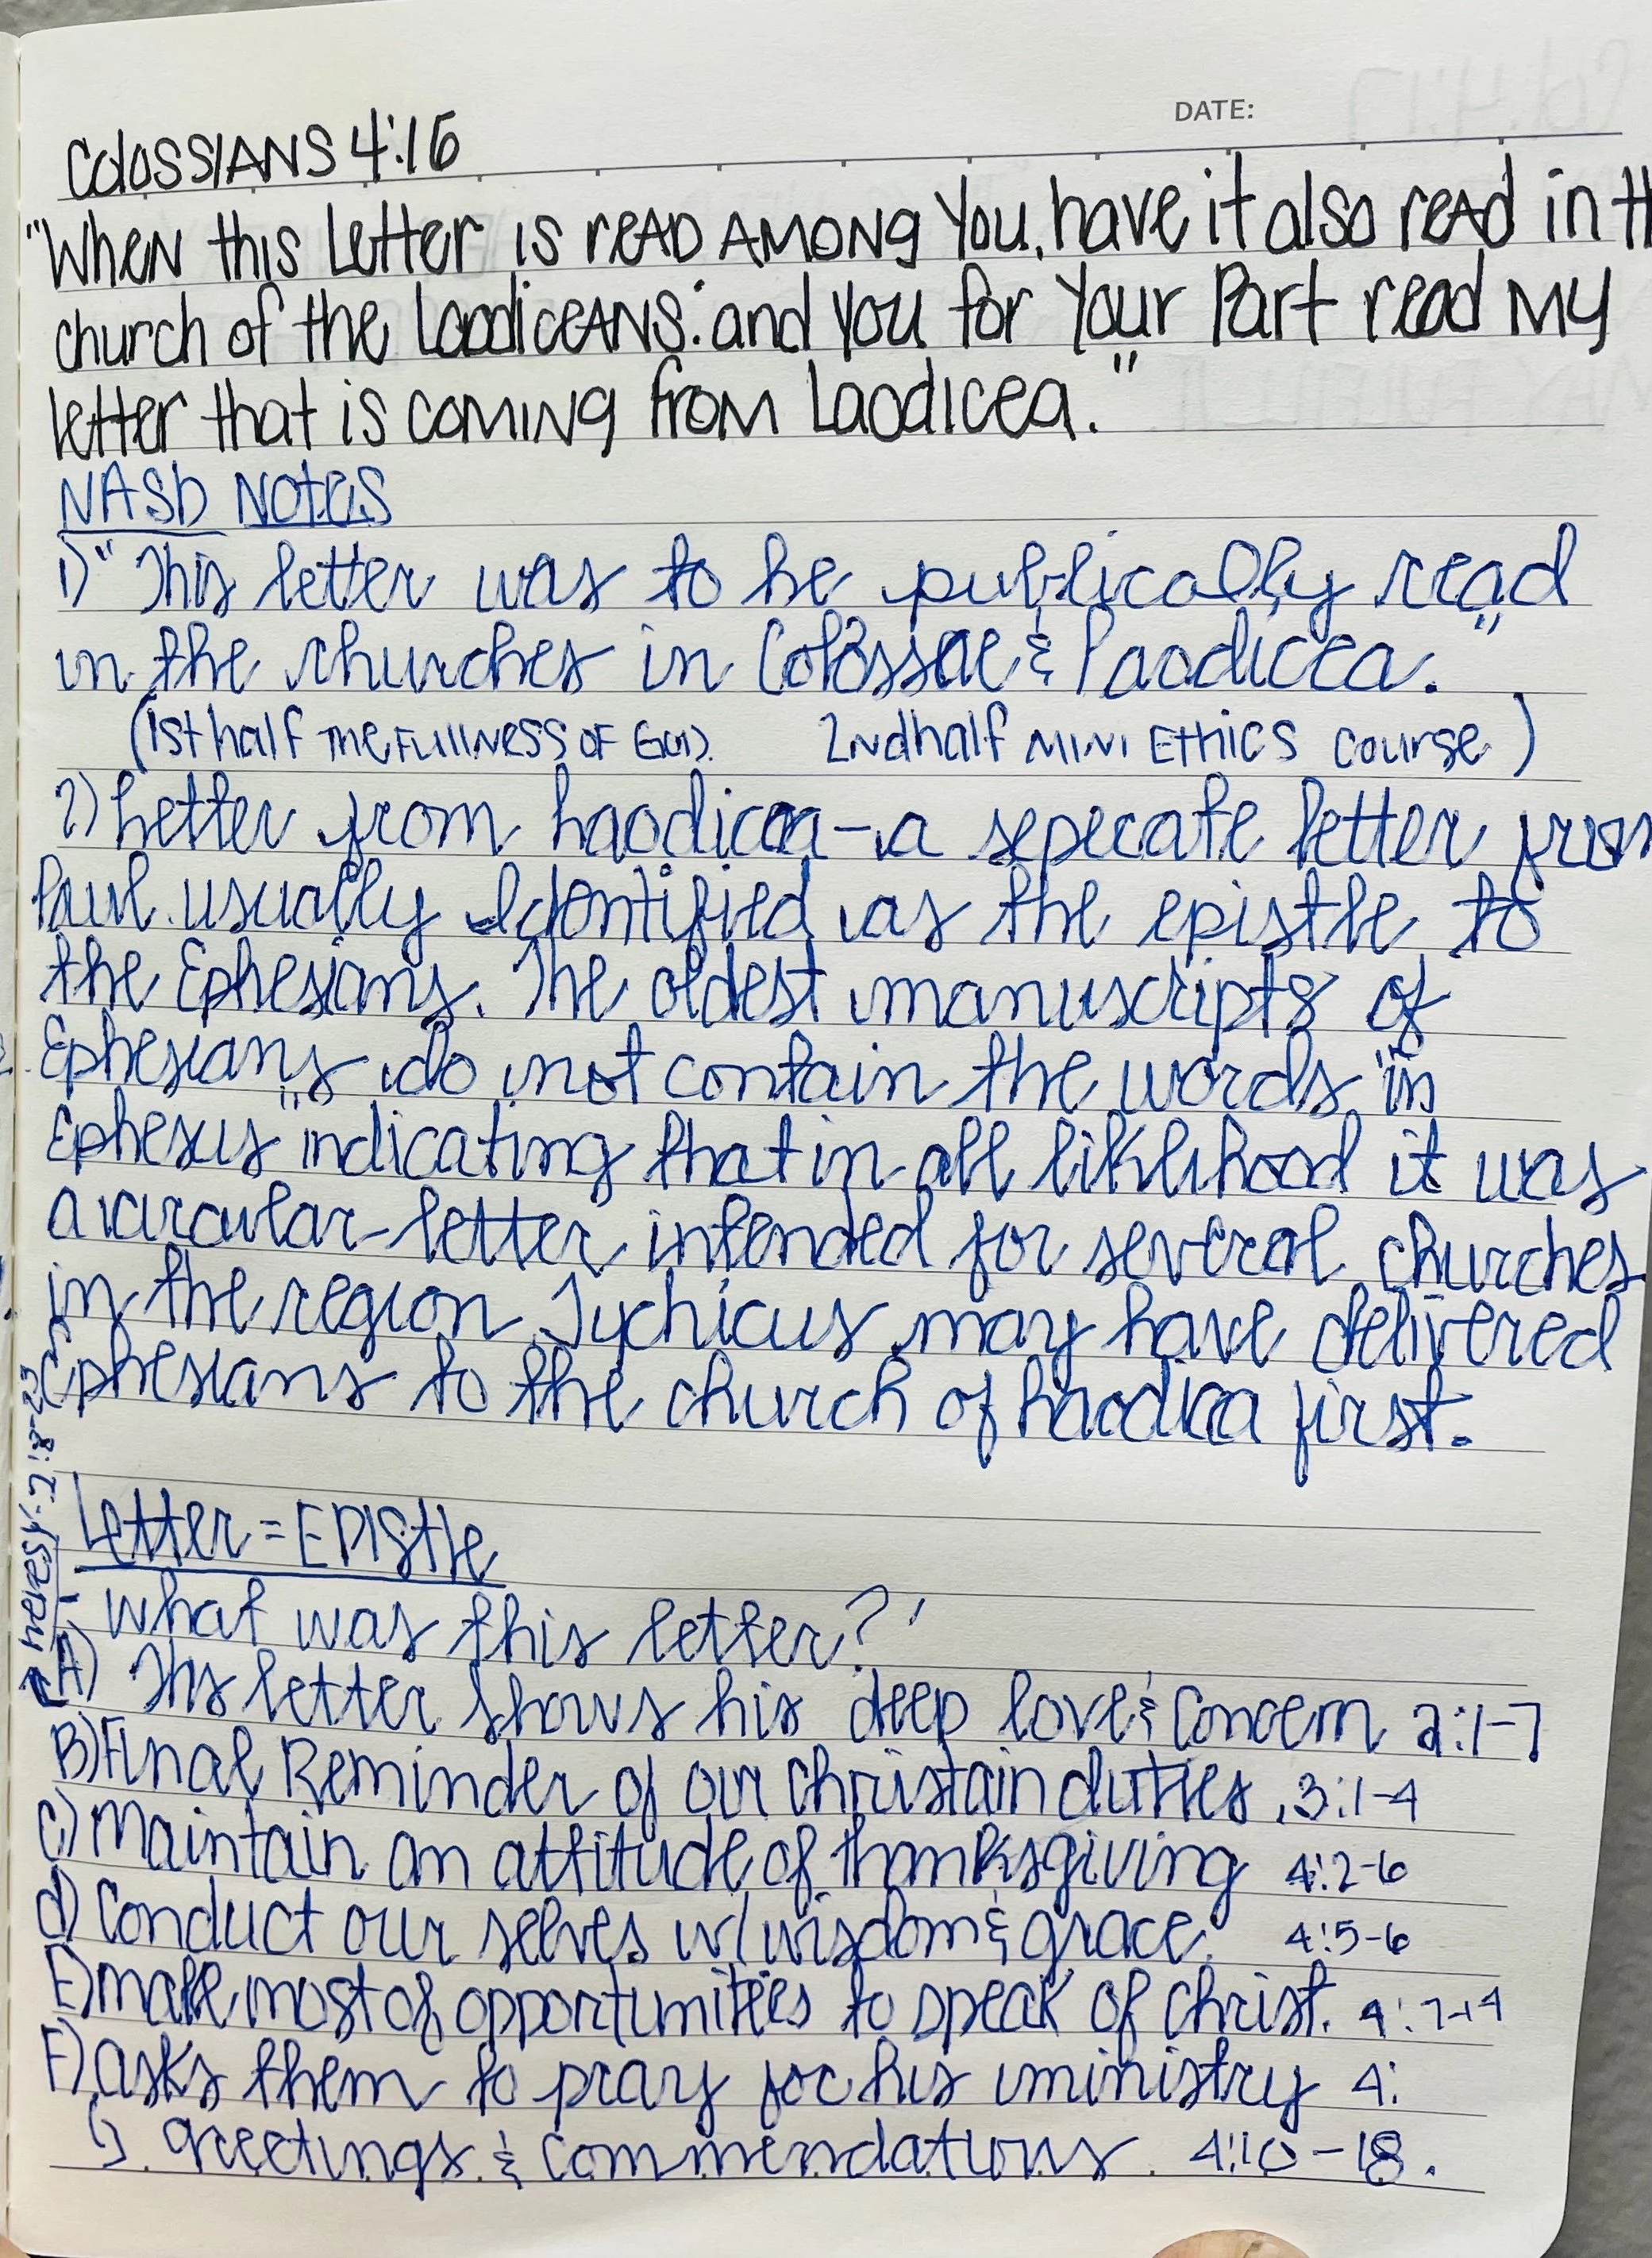 DATE:
Colossians 4:16
"When this Letter is read among you, have it also read in th
church of the Laodiceans; and you for your part read my
letter that is coming from Laodicea."
NASb Notes
1) "This letter was to be publically read
in the churches in Colossae & Laodicea."
(1st half The Fullness of God. 2nd half mini Ethics course)
2) Letter from Laodicea - a seperate letter from
Paul usually identified as the epistle to
the Ephesians. The oldest manuscripts of
Ephesians do not contain the words "in
Ephesus" indicating that in all liklihood it was
a circular-letter intended for several churches
in the region Tychicus may have delivered
Ephesians to the church of Laodicea first.
Letter = Epistle
What was this letter?
A) This letter shows his deep love & concern 2:1-7
heresy 2:8-23
B) Final Reminder of our Christain duties 3:1-4
C) Maintain an attitude of thanksgiving 4:2-6
d) Conduct our selves w/ wisdom & grace 4:5-6
E) make most of opportunities to speak of Christ. 4:7-14
F) asks them to pray for his ministry 4:
G) Greetings & Commendations 4:10-18.